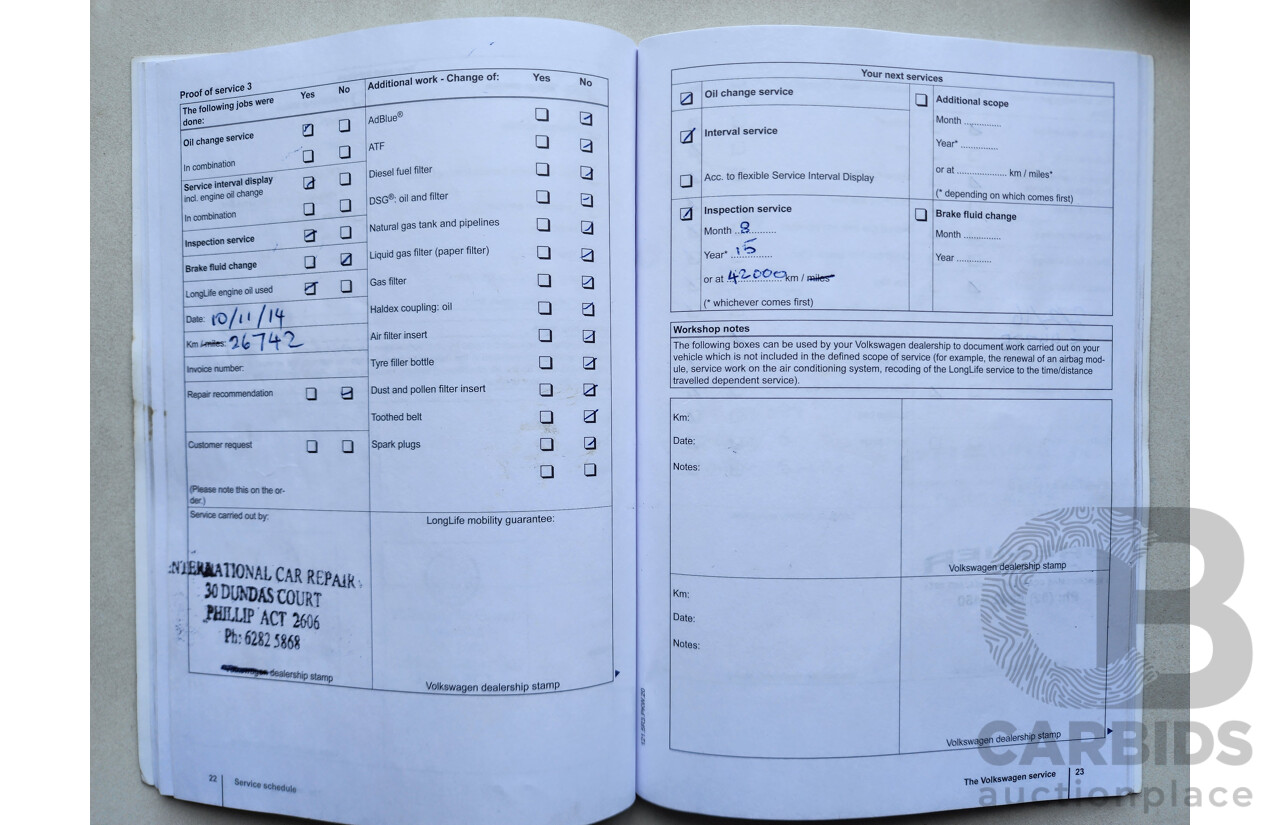 Proof of service 3
The following jobs were done:
Yes No
Oil change service
In combination
Service interval display
incl. engine oil change
In combination
Inspection service
Brake fluid change
LongLife engine oil used
Date: 10/11/14
Km /miles: 26742
Invoice number:
Repair recommendation
Customer request
(Please note this on the or-
der.)
Service carried out by:
INTERNATIONAL CAR REPAIR
30 DUNDAS COURT
PHILLIP ACT 2606
Ph: 6282 5868
Volkswagen dealership stamp
Additional work - Change of: Yes No
AdBlue®
ATF
Diesel fuel filter
DSG®: oil and filter
Natural gas tank and pipelines
Liquid gas filter (paper filter)
Gas filter
Haldex coupling: oil
Air filter insert
Tyre filler bottle
Dust and pollen filter insert
Toothed belt
Spark plugs
LongLife mobility guarantee:
Volkswagen dealership stamp
22 Service schedule
Your next services
Oil change service
Interval service
Acc. to flexible Service Interval Display
Inspection service
Month ..8..........
Year* ..15............
or at 42000 km / miles*
(* whichever comes first)
Additional scope
Month .............
Year* .............
or at .................. km / miles*
(* depending on which comes first)
Brake fluid change
Month .............
Year ............
Workshop notes
The following boxes can be used by your Volkswagen dealership to document work carried out on your
vehicle which is not included in the defined scope of service (for example, the renewal of an airbag mod-
ule, service work on the air conditioning system, recoding of the LongLife service to the time/distance
travelled dependent service).
Km:
Date:
Notes:
Volkswagen dealership stamp
Km:
Date:
Notes:
Volkswagen dealership stamp
The Volkswagen service 23
CARBIDS
auctionplace